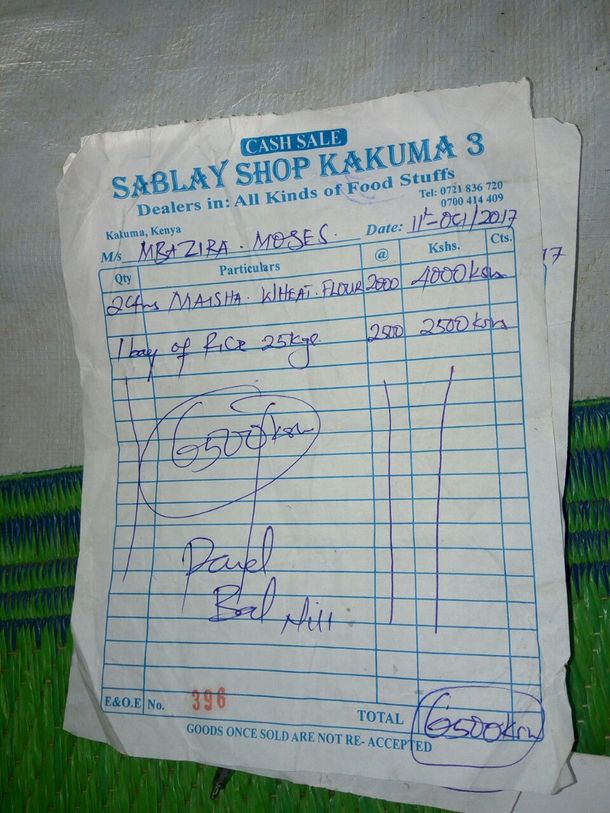 CASH SALE
SABLAY SHOP KAKUMA 3
Dealers in: All Kinds of Food Stuffs
Kakuma, Kenya
Tel: 0721 836 720
0700 414 409
M/s MBAZIRA. MOSES. Date: 11th-Oct/2017
Qty Particulars @ Kshs. Cts.
2ctns MAISHA. WHEAT. FLOUR 2000 4000ksh
1 bag of Rice 25kgs. 2500 2500ksh
6500ksh
Bal Nill
E&O.E No. 396
TOTAL 6500Ksh
GOODS ONCE SOLD ARE NOT RE- ACCEPTED
17